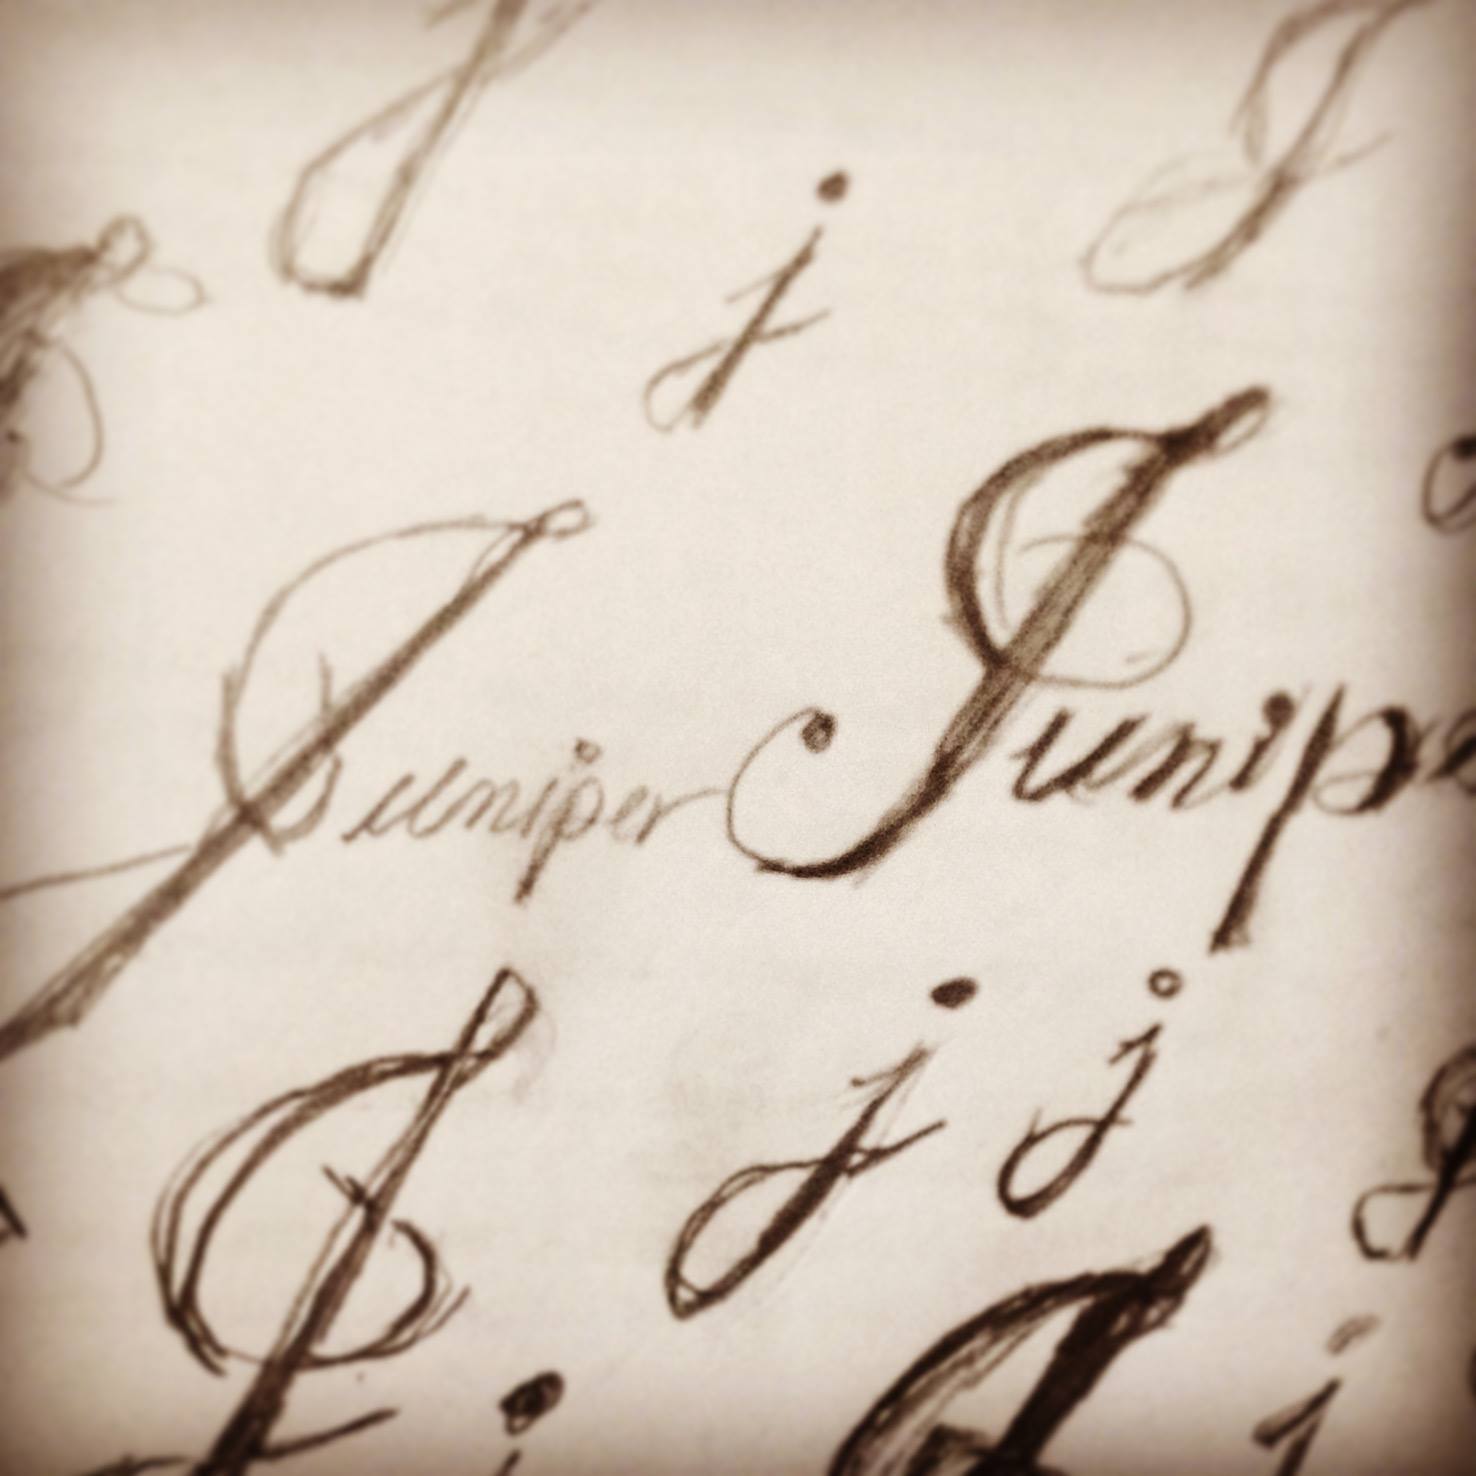 J
j
J
Juniper
Junipe
J
j
j
J
j